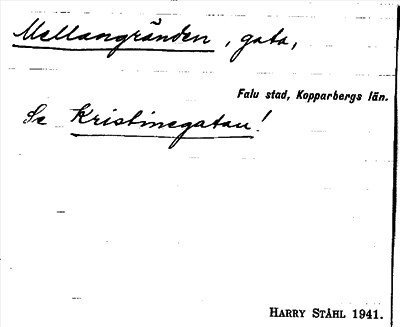 Mellangränden, gata,
Falu stad, Kopparbergs län.
Se Kristinegatan!
HARRY STÅHL 1941.